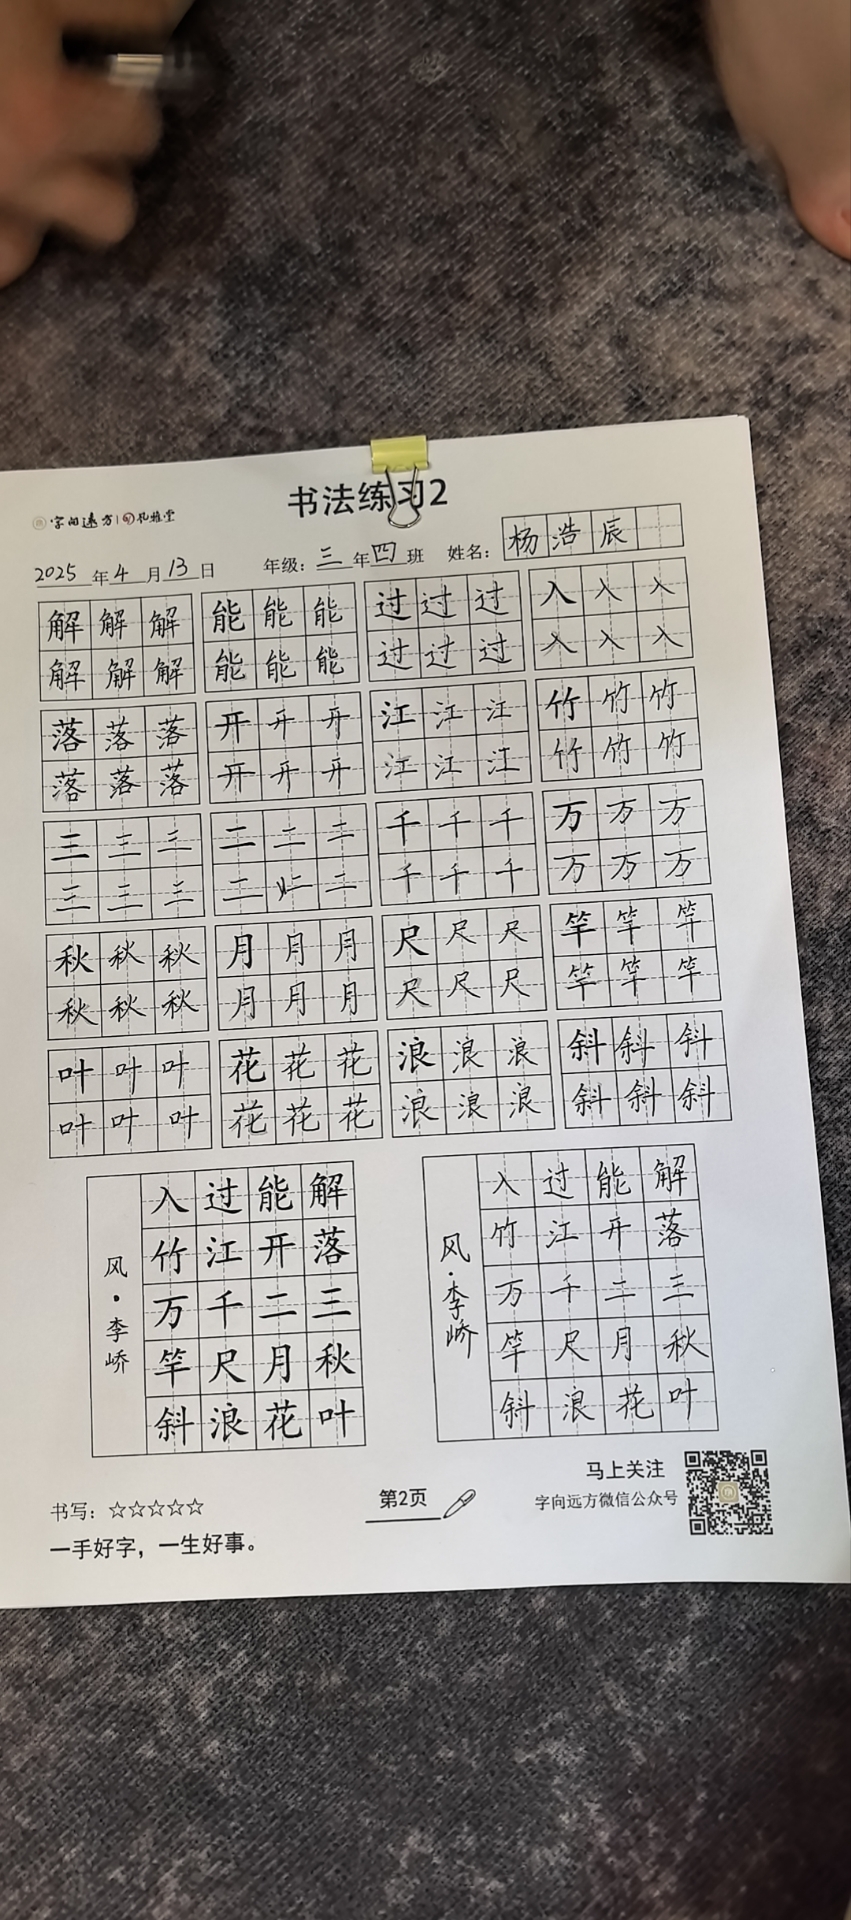 书法练习2
字向远方 | 孔雅堂
2025年4月13日 年级：三年四班 姓名：杨浩辰
解解解 能能能 过过过 入入入
解解解 能能能 过过过 入入入
落落落 开开开 江江江 竹竹竹
落落落 开开开 江江江 竹竹竹
三三三 二二二 千千千 万万万
三三三 二二二 千千千 万万万
秋秋秋 月月月 尺尺尺 竿竿竿
秋秋秋 月月月 尺尺尺 竿竿竿
叶叶叶 花花花 浪浪浪 斜斜斜
叶叶叶 花花花 浪浪浪 斜斜斜
风·李峤
解落三秋叶
能开二月花
过江千尺浪
入竹万竿斜
风·李峤
解落三秋叶
能开二月花
过江千尺浪
入竹万竿斜
书写：☆☆☆☆☆
一手好字，一生好事。
第2页
马上关注
字向远方微信公众号